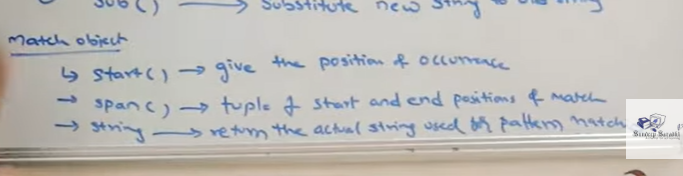 sub() → substitute new string to old string
Match object
↳ start() → give the position of occurrence
→ span() → tuple of start and end positions of match
→ string → return the actual string used for pattern match